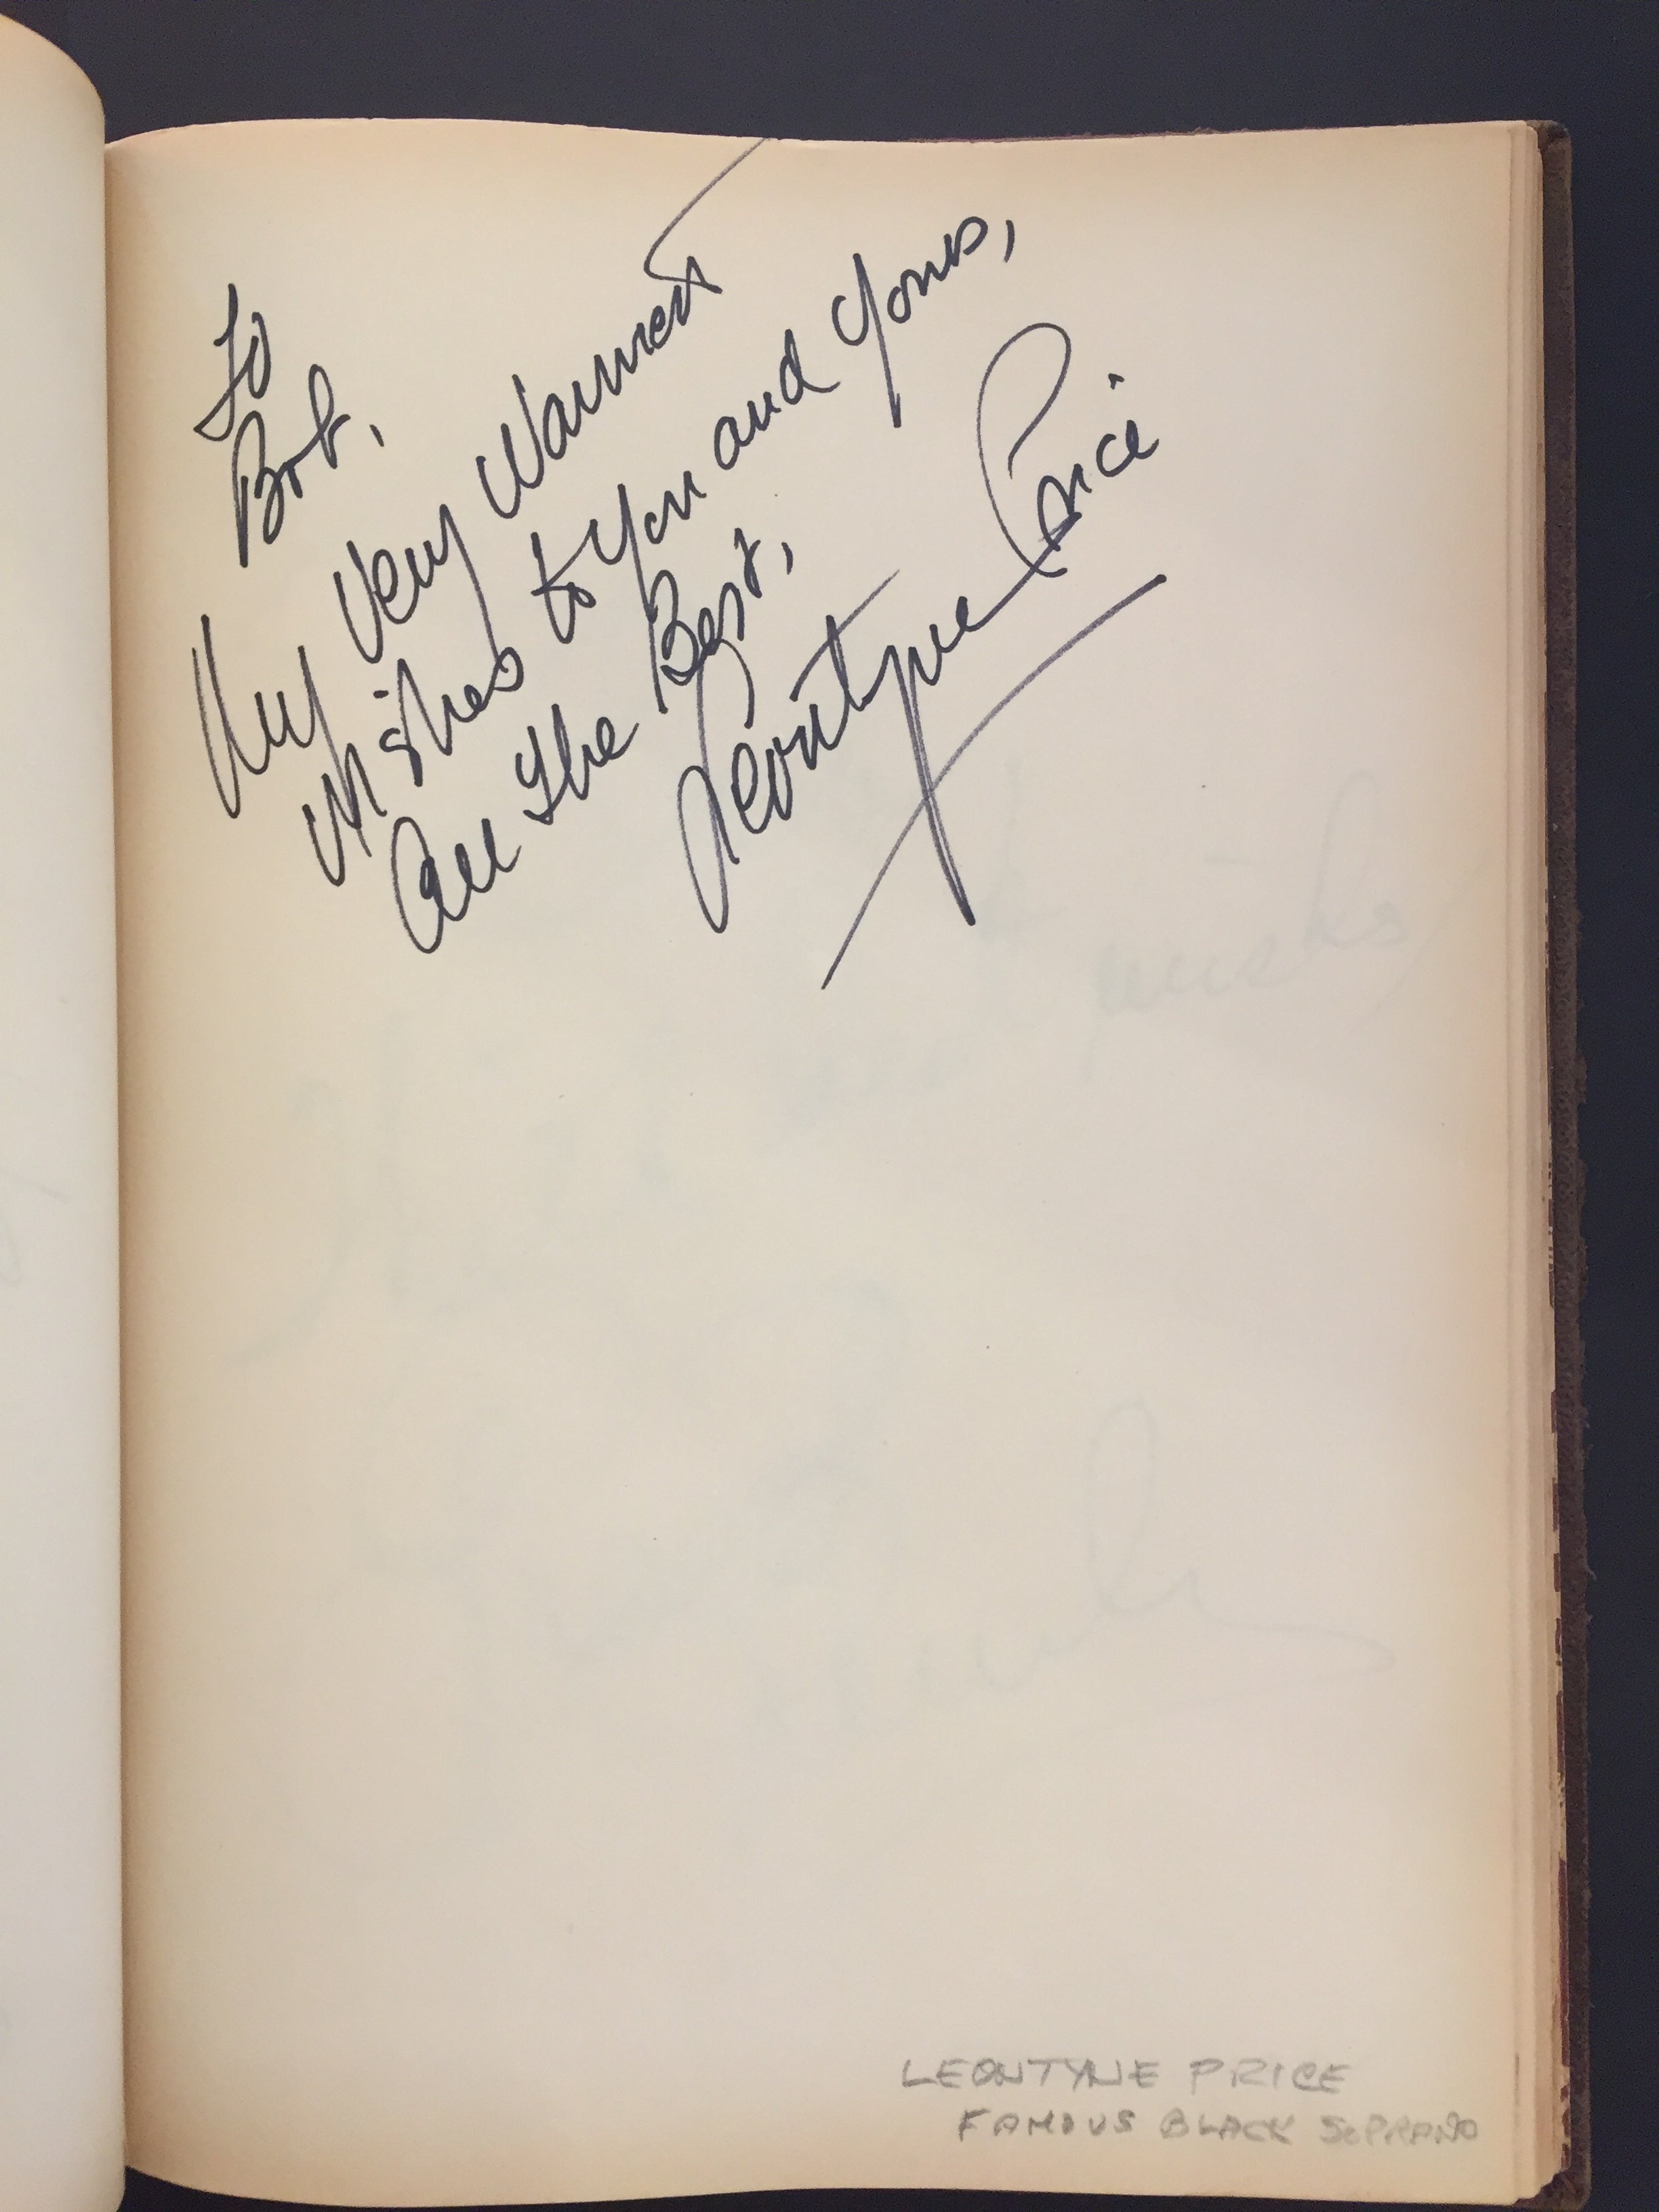 To
Bob,
My Very Warmest
Wishes to You and Yours,
All The Best,
Leontyne Price
LEONTYNE PRICE
FAMOUS BLACK SOPRANO